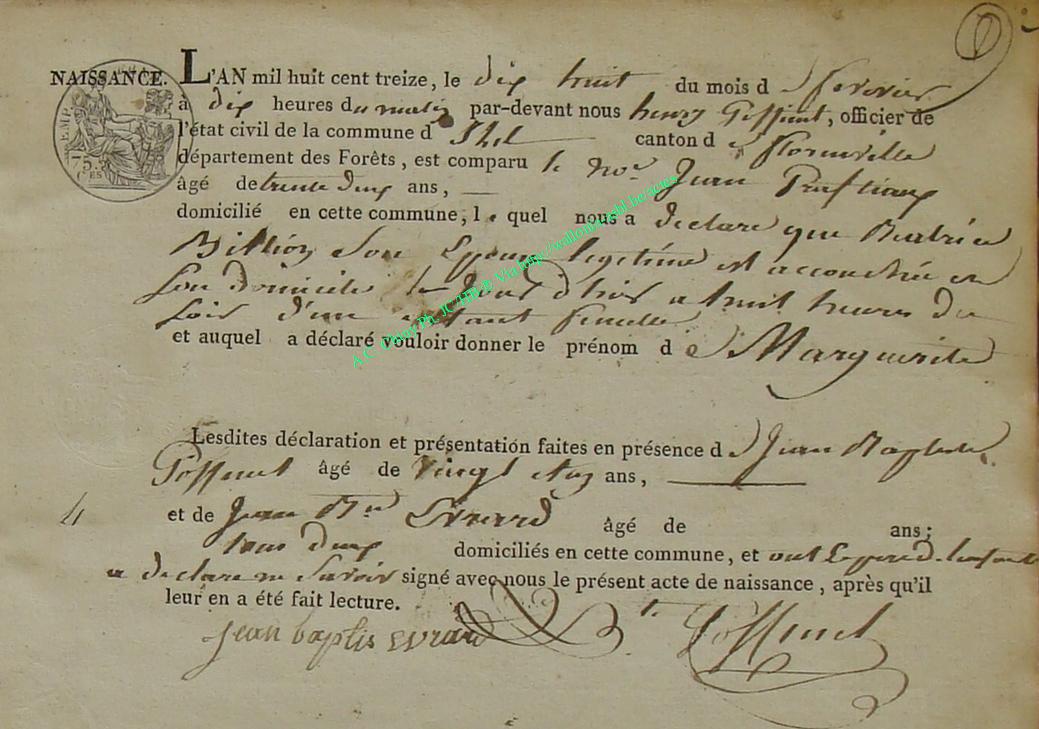 NAISSANCE. L'AN mil huit cent treize, le dix huit du mois d e fevrier
à dix heures du matin par-devant nous henry Goffinet, officier de
l'état civil de la commune d canton d e florenville
département des Forêts, est comparu le Jean
âgé de trente deux ans,
domicilié en cette commune, le quel nous a declaré que Beatrice
Billion Son Epouse legitime est accouchée en
Son Domicile le Jour d'hier a huit heures du
soir d'un enfant femelle
et auquel a déclaré vouloir donner le prénom d e Marguerite
Lesdites déclaration et présentation faites en présence d e Jean Baptiste
Goffinet âgé de vingt ans,
4 et de Jean Bte Evrard âgé de ans;
tous deux domiciliés en cette commune, et ont le pere de l'enfant
a declare ne Savoir signé avec nous le présent acte de naissance, après qu'il
leur en a été fait lecture.
jean baptis evrard Bte Goffinet
TIMP
75.
CES